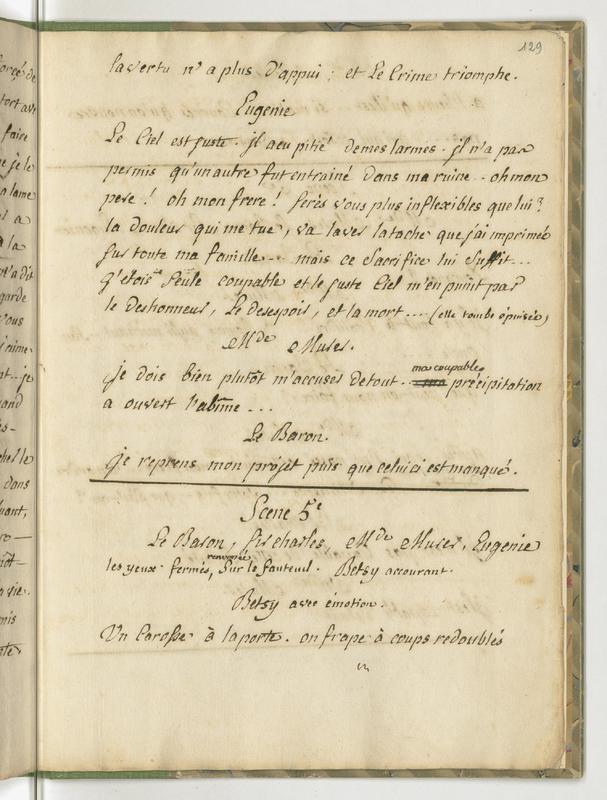 129
la vertu n'a plus d'appui ; et Le Crime triomphe.
Eugenie
Le Ciel est juste. il a eu pitié de mes larmes. il n'a pas
permis qu'un autre fut entrainé dans ma ruine .. oh mon
pere ! oh mon frere ! serés vous plus inflexibles que lui ?
la douleur qui me tue, va laver la tache que j'ai imprimée
sur toute ma famille ... mais ce sacrifice lui suffit...
j'etois seule coupable et le juste Ciel m'en punit par
le deshonneur, Le desespoir, et la mort .... (elle tombe épuisée)
Mde Murer.
je dois bien plutôt m'accuser de tout .. ma coupable précipitation
a ouvert l'abîme ...
Le Baron.
je reprens mon projet puis que celui ci est manqué.
Scene 5e
Le Baron, sir charles, Mde Murer, Eugenie
les yeux fermés, renversée sur le fauteuil. Betsy accourant.
Betsy avec émotion.
Un Carosse à la porte. on frape à coups redoublés